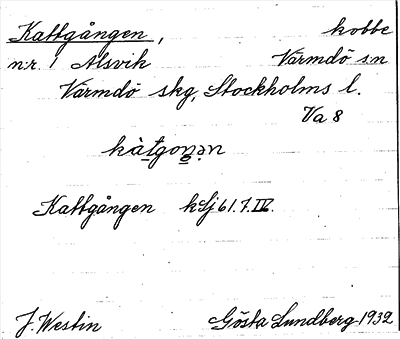 Kattgången, kobbe
n:r. 1 Alsvik Värmdö sn
Värmdö skg, Stockholms l.
Va 8
Kattgången kSj 61.7.IV.
J. Westin Gösta Lundberg 1932